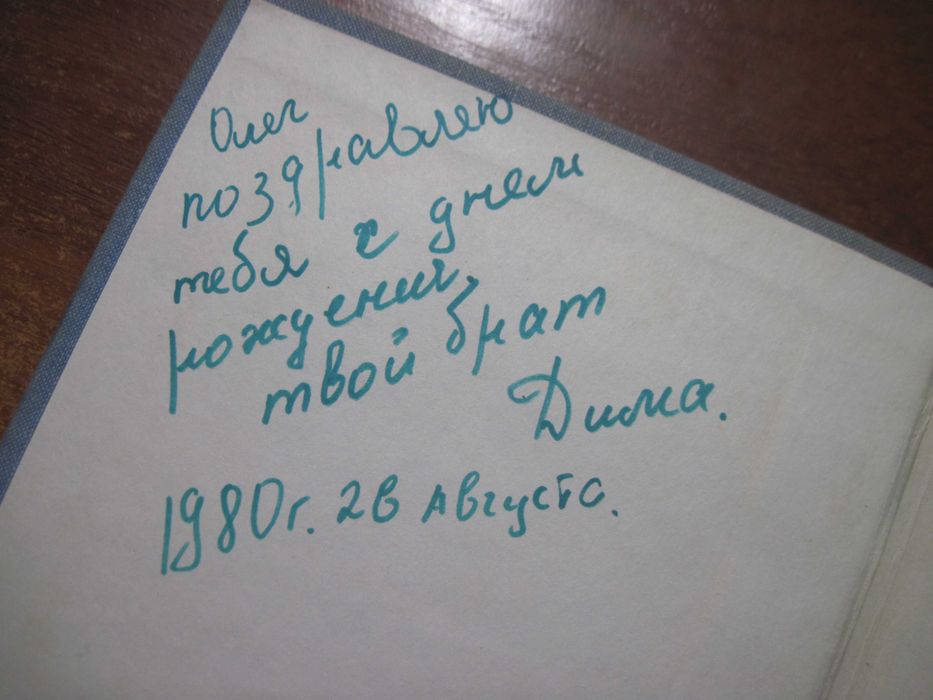 Олег
поздравляю
тебя с днем
рождения,
твой брат
Дима.
1980г. 26 августа.